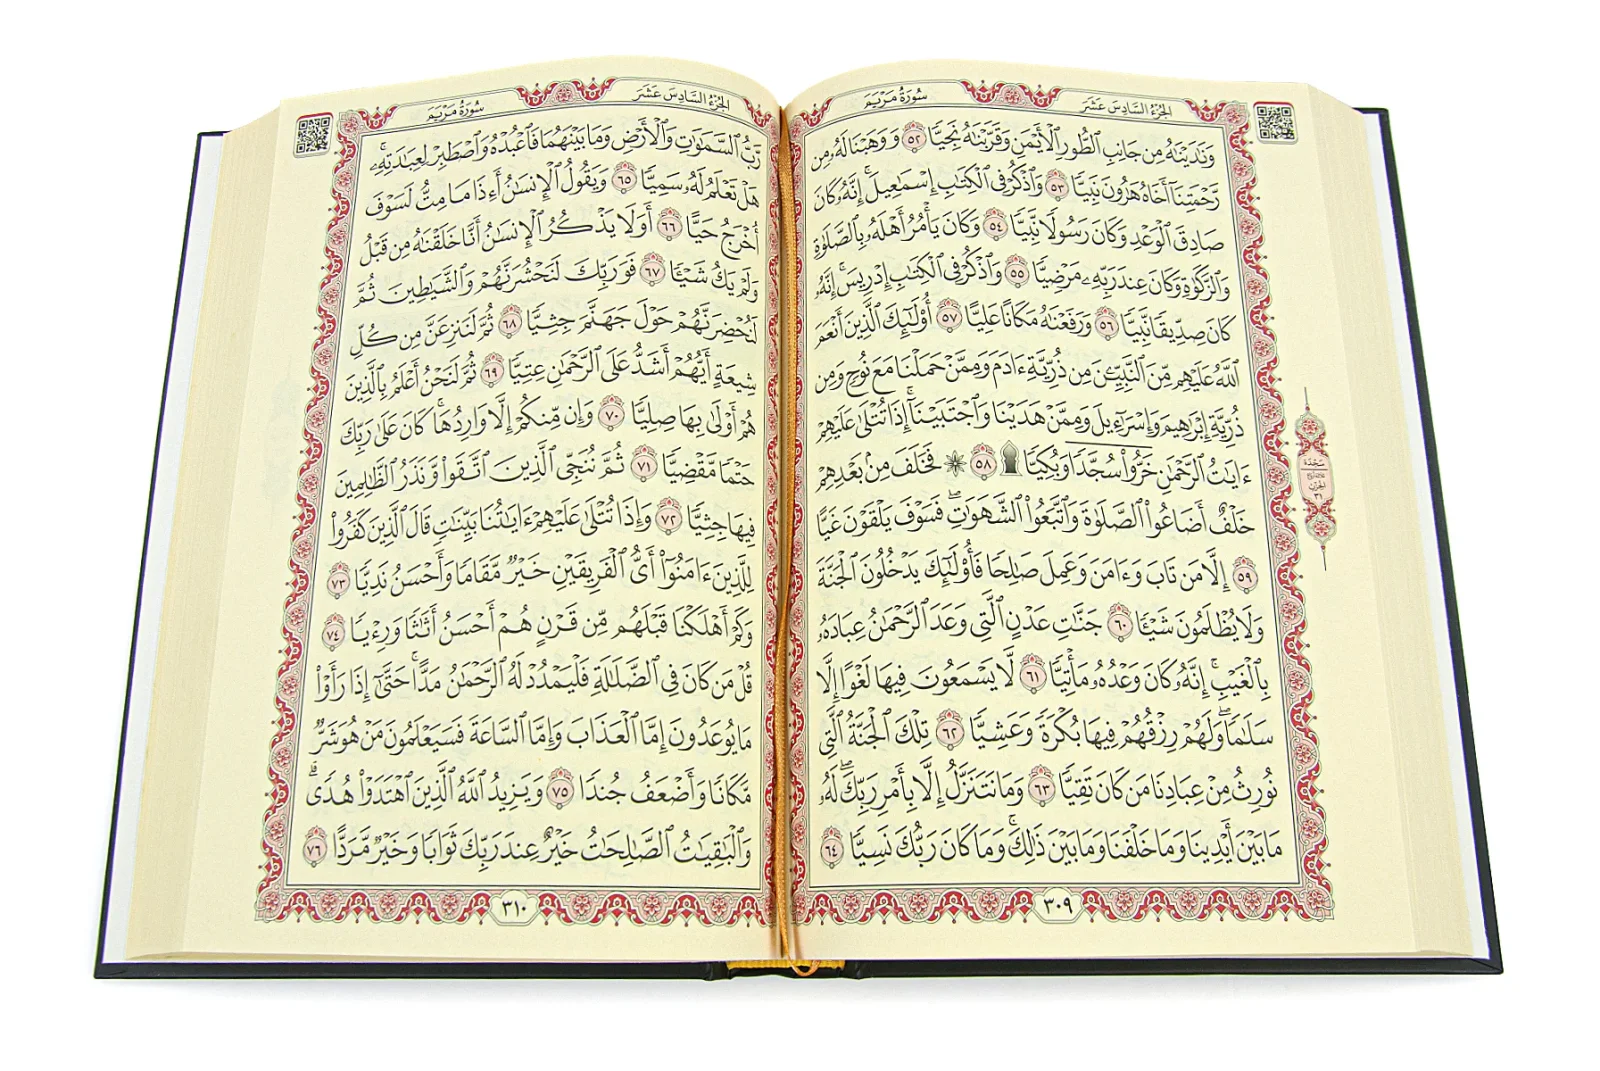 سُورَةُ مَرْيَمَ
الجُزْءُ السَّادِسَ عَشَرَ
وَنَٰدَيْنَٰهُ مِن جَانِبِ ٱلطُّورِ ٱلْأَيْمَنِ وَقَرَّبْنَٰهُ نَجِيًّا ٥٢ وَوَهَبْنَا لَهُۥ مِن
رَّحْمَتِنَآ أَخَاهُ هَٰرُونَ نَبِيًّا ٥٣ وَٱذْكُرْ فِى ٱلْكِتَٰبِ إِسْمَٰعِيلَ ۚ إِنَّهُۥ كَانَ
صَادِقَ ٱلْوَعْدِ وَكَانَ رَسُولًا نَّبِيًّا ٥٤ وَكَانَ يَأْمُرُ أَهْلَهُۥ بِٱلصَّلَوٰةِ
وَٱلزَّكَوٰةِ وَكَانَ عِندَ رَبِّهِۦ مَرْضِيًّا ٥٥ وَٱذْكُرْ فِى ٱلْكِتَٰبِ إِدْرِيسَ ۚ إِنَّهُۥ
كَانَ صِدِّيقًا نَّبِيًّا ٥٦ وَرَفَعْنَٰهُ مَكَانًا عَلِيًّا ٥٧ أُو۟لَٰٓئِكَ ٱلَّذِينَ أَنْعَمَ
ٱللَّهُ عَلَيْهِم مِّنَ ٱلنَّبِيِّـۧنَ مِن ذُرِّيَّةِ ءَادَمَ وَمِمَّنْ حَمَلْنَا مَعَ نُوحٍ وَمِن
ذُرِّيَّةِ إِبْرَٰهِيمَ وَإِسْرَٰٓءِيلَ وَمِمَّنْ هَدَيْنَا وَٱجْتَبَيْنَآ ۚ إِذَا تُتْلَىٰ عَلَيْهِمْ
ءَايَٰتُ ٱلرَّحْمَٰنِ خَرُّوا۟ سُجَّدًا وَبُكِيًّا ۩ ٥٨ ۞ فَخَلَفَ مِنۢ بَعْدِهِمْ
خَلْفٌ أَضَاعُوا۟ ٱلصَّلَوٰةَ وَٱتَّبَعُوا۟ ٱلشَّهَوَٰتِ ۖ فَسَوْفَ يَلْقَوْنَ غَيًّا
٥٩ إِلَّا مَن تَابَ وَءَامَنَ وَعَمِلَ صَٰلِحًا فَأُو۟لَٰٓئِكَ يَدْخُلُونَ ٱلْجَنَّةَ
وَلَا يُظْلَمُونَ شَيْـًٔا ٦٠ جَنَّٰتِ عَدْنٍ ٱلَّتِى وَعَدَ ٱلرَّحْمَٰنُ عِبَادَهُۥ
بِٱلْغَيْبِ ۚ إِنَّهُۥ كَانَ وَعْدُهُۥ مَأْتِيًّا ٦١ لَّا يَسْمَعُونَ فِيهَا لَغْوًا إِلَّا
سَلَٰمًا ۖ وَلَهُمْ رِزْقُهُمْ فِيهَا بُكْرَةً وَعَشِيًّا ٦٢ تِلْكَ ٱلْجَنَّةُ ٱلَّتِى
نُورِثُ مِنْ عِبَادِنَا مَن كَانَ تَقِيًّا ٦٣ وَمَا نَتَنَزَّلُ إِلَّا بِأَمْرِ رَبِّكَ ۖ لَهُۥ
مَا بَيْنَ أَيْدِينَا وَمَا خَلْفَنَا وَمَا بَيْنَ ذَٰلِكَ ۚ وَمَا كَانَ رَبُّكَ نَسِيًّا ٦٤
٣٠٩
سَجْدَة
سُورَةُ مَرْيَمَ
الجُزْءُ السَّادِسَ عَشَرَ
رَّبُّ ٱلسَّمَٰوَٰتِ وَٱلْأَرْضِ وَمَا بَيْنَهُمَا فَٱعْبُدْهُ وَٱصْطَبِرْ لِعِبَٰدَتِهِۦ ۚ
هَلْ تَعْلَمُ لَهُۥ سَمِيًّا ٦٥ وَيَقُولُ ٱلْإِنسَٰنُ أَءِذَا مَا مِتُّ لَسَوْفَ
أُخْرَجُ حَيًّا ٦٦ أَوَلَا يَذْكُرُ ٱلْإِنسَٰنُ أَنَّا خَلَقْنَٰهُ مِن قَبْلُ
وَلَمْ يَكُ شَيْـًٔا ٦٧ فَوَرَبِّكَ لَنَحْشُرَنَّهُمْ وَٱلشَّيَٰطِينَ ثُمَّ
لَنُحْضِرَنَّهُمْ حَوْلَ جَهَنَّمَ جِثِيًّا ٦٨ ثُمَّ لَنَنزِعَنَّ مِن كُلِّ
شِيعَةٍ أَيُّهُمْ أَشَدُّ عَلَى ٱلرَّحْمَٰنِ عِتِيًّا ٦٩ ثُمَّ لَنَحْنُ أَعْلَمُ بِٱلَّذِينَ
هُمْ أَوْلَىٰ بِهَا صِلِيًّا ٧٠ وَإِن مِّنكُمْ إِلَّا وَارِدُهَا ۚ كَانَ عَلَىٰ رَبِّكَ
حَتْمًا مَّقْضِيًّا ٧١ ثُمَّ نُنَجِّى ٱلَّذِينَ ٱتَّقَوا۟ وَّنَذَرُ ٱلظَّٰلِمِينَ
فِيهَا جِثِيًّا ٧٢ وَإِذَا تُتْلَىٰ عَلَيْهِمْ ءَايَٰتُنَا بَيِّنَٰتٍ قَالَ ٱلَّذِينَ كَفَرُوا۟
لِلَّذِينَ ءَامَنُوٓا۟ أَىُّ ٱلْفَرِيقَيْنِ خَيْرٌ مَّقَامًا وَأَحْسَنُ نَدِيًّا ٧٣
وَكَمْ أَهْلَكْنَا قَبْلَهُم مِّن قَرْنٍ هُمْ أَحْسَنُ أَثَٰثًا وَرِءْيًا ٧٤
قُلْ مَن كَانَ فِى ٱلضَّلَٰلَةِ فَلْيَمْدُدْ لَهُ ٱلرَّحْمَٰنُ مَدًّا ۚ حَتَّىٰٓ إِذَا رَأَوْا۟
مَا يُوعَدُونَ إِمَّا ٱلْعَذَابَ وَإِمَّا ٱلسَّاعَةَ فَسَيَعْلَمُونَ مَنْ هُوَ شَرٌّ
مَّكَانًا وَأَضْعَفُ جُندًا ٧٥ وَيَزِيدُ ٱللَّهُ ٱلَّذِينَ ٱهْتَدَوْا۟ هُدًى ۗ
وَٱلْبَٰقِيَٰتُ ٱلصَّٰلِحَٰتُ خَيْرٌ عِندَ رَبِّكَ ثَوَابًا وَخَيْرٌ مَّرَدًّا ٧٦
٣١٠